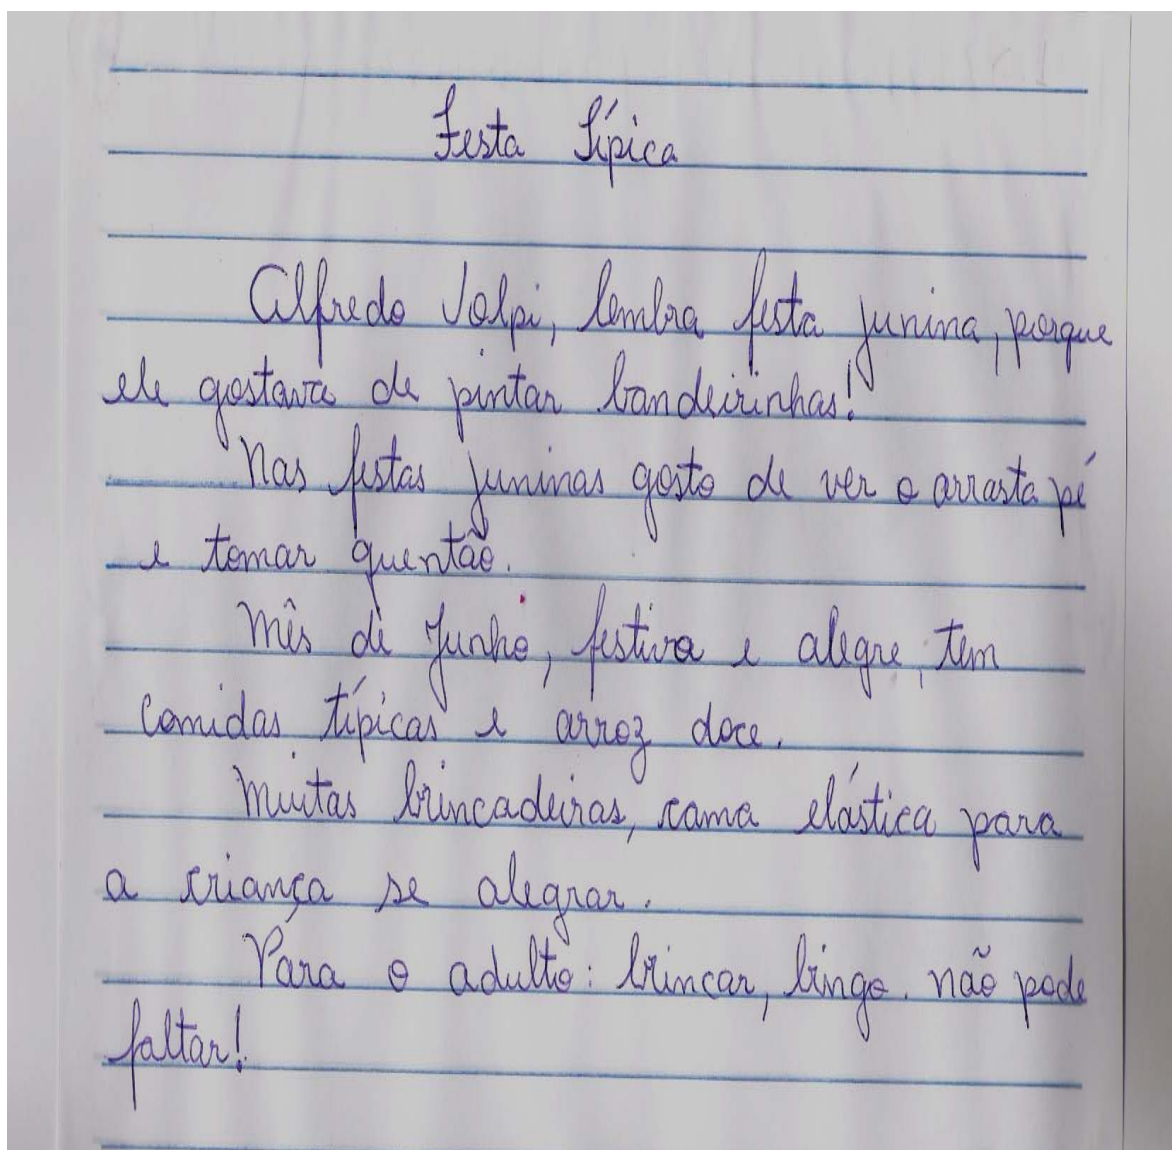 Festa Típica
Alfredo Volpi, lembra festa junina, porque
ele gostava de pintar bandeirinhas!
Nas festas juninas gosto de ver o arrasta pé
e tomar quentão.
Mês de Junho, festiva e alegre, tem
comidas típicas e arroz doce.
Muitas brincadeiras, cama elástica para
a criança se alegrar.
Para o adulto: brincar, bingo. não pode
faltar!